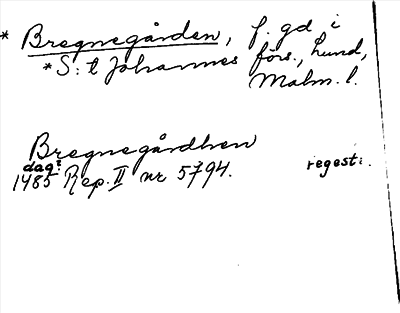 * Bregnegården, f. gd i
* S:t Johannes förs., Lund,
Malm. l.
Bregnegårdhen
dag:
1485 Rep. II nr 5794. regest:.